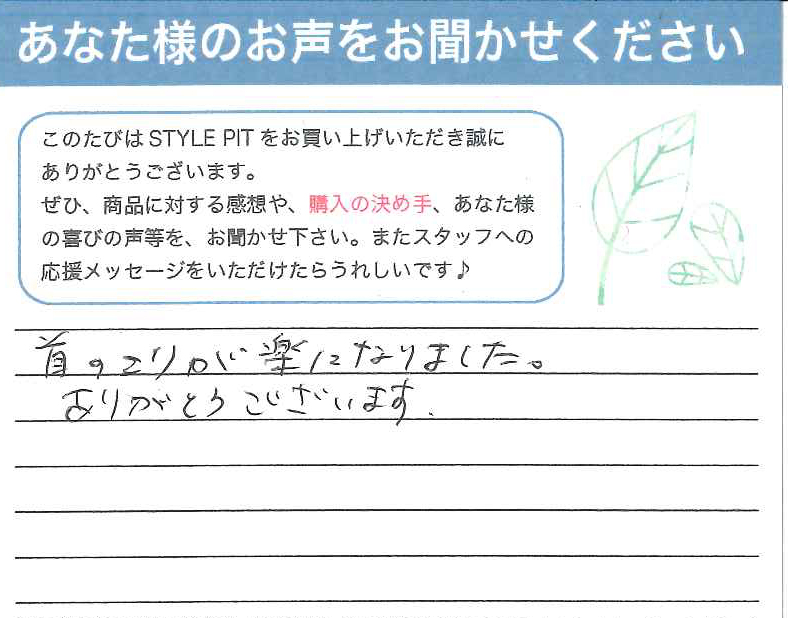 あなた様のお声をお聞かせください
このたびは STYLE PIT をお買い上げいただき誠に
ありがとうございます。
ぜひ、商品に対する感想や、購入の決め手、あなた様
の喜びの声等を、お聞かせ下さい。またスタッフへの
応援メッセージをいただけたらうれしいです♪
首のコリが楽になりました。
ありがとうございます.